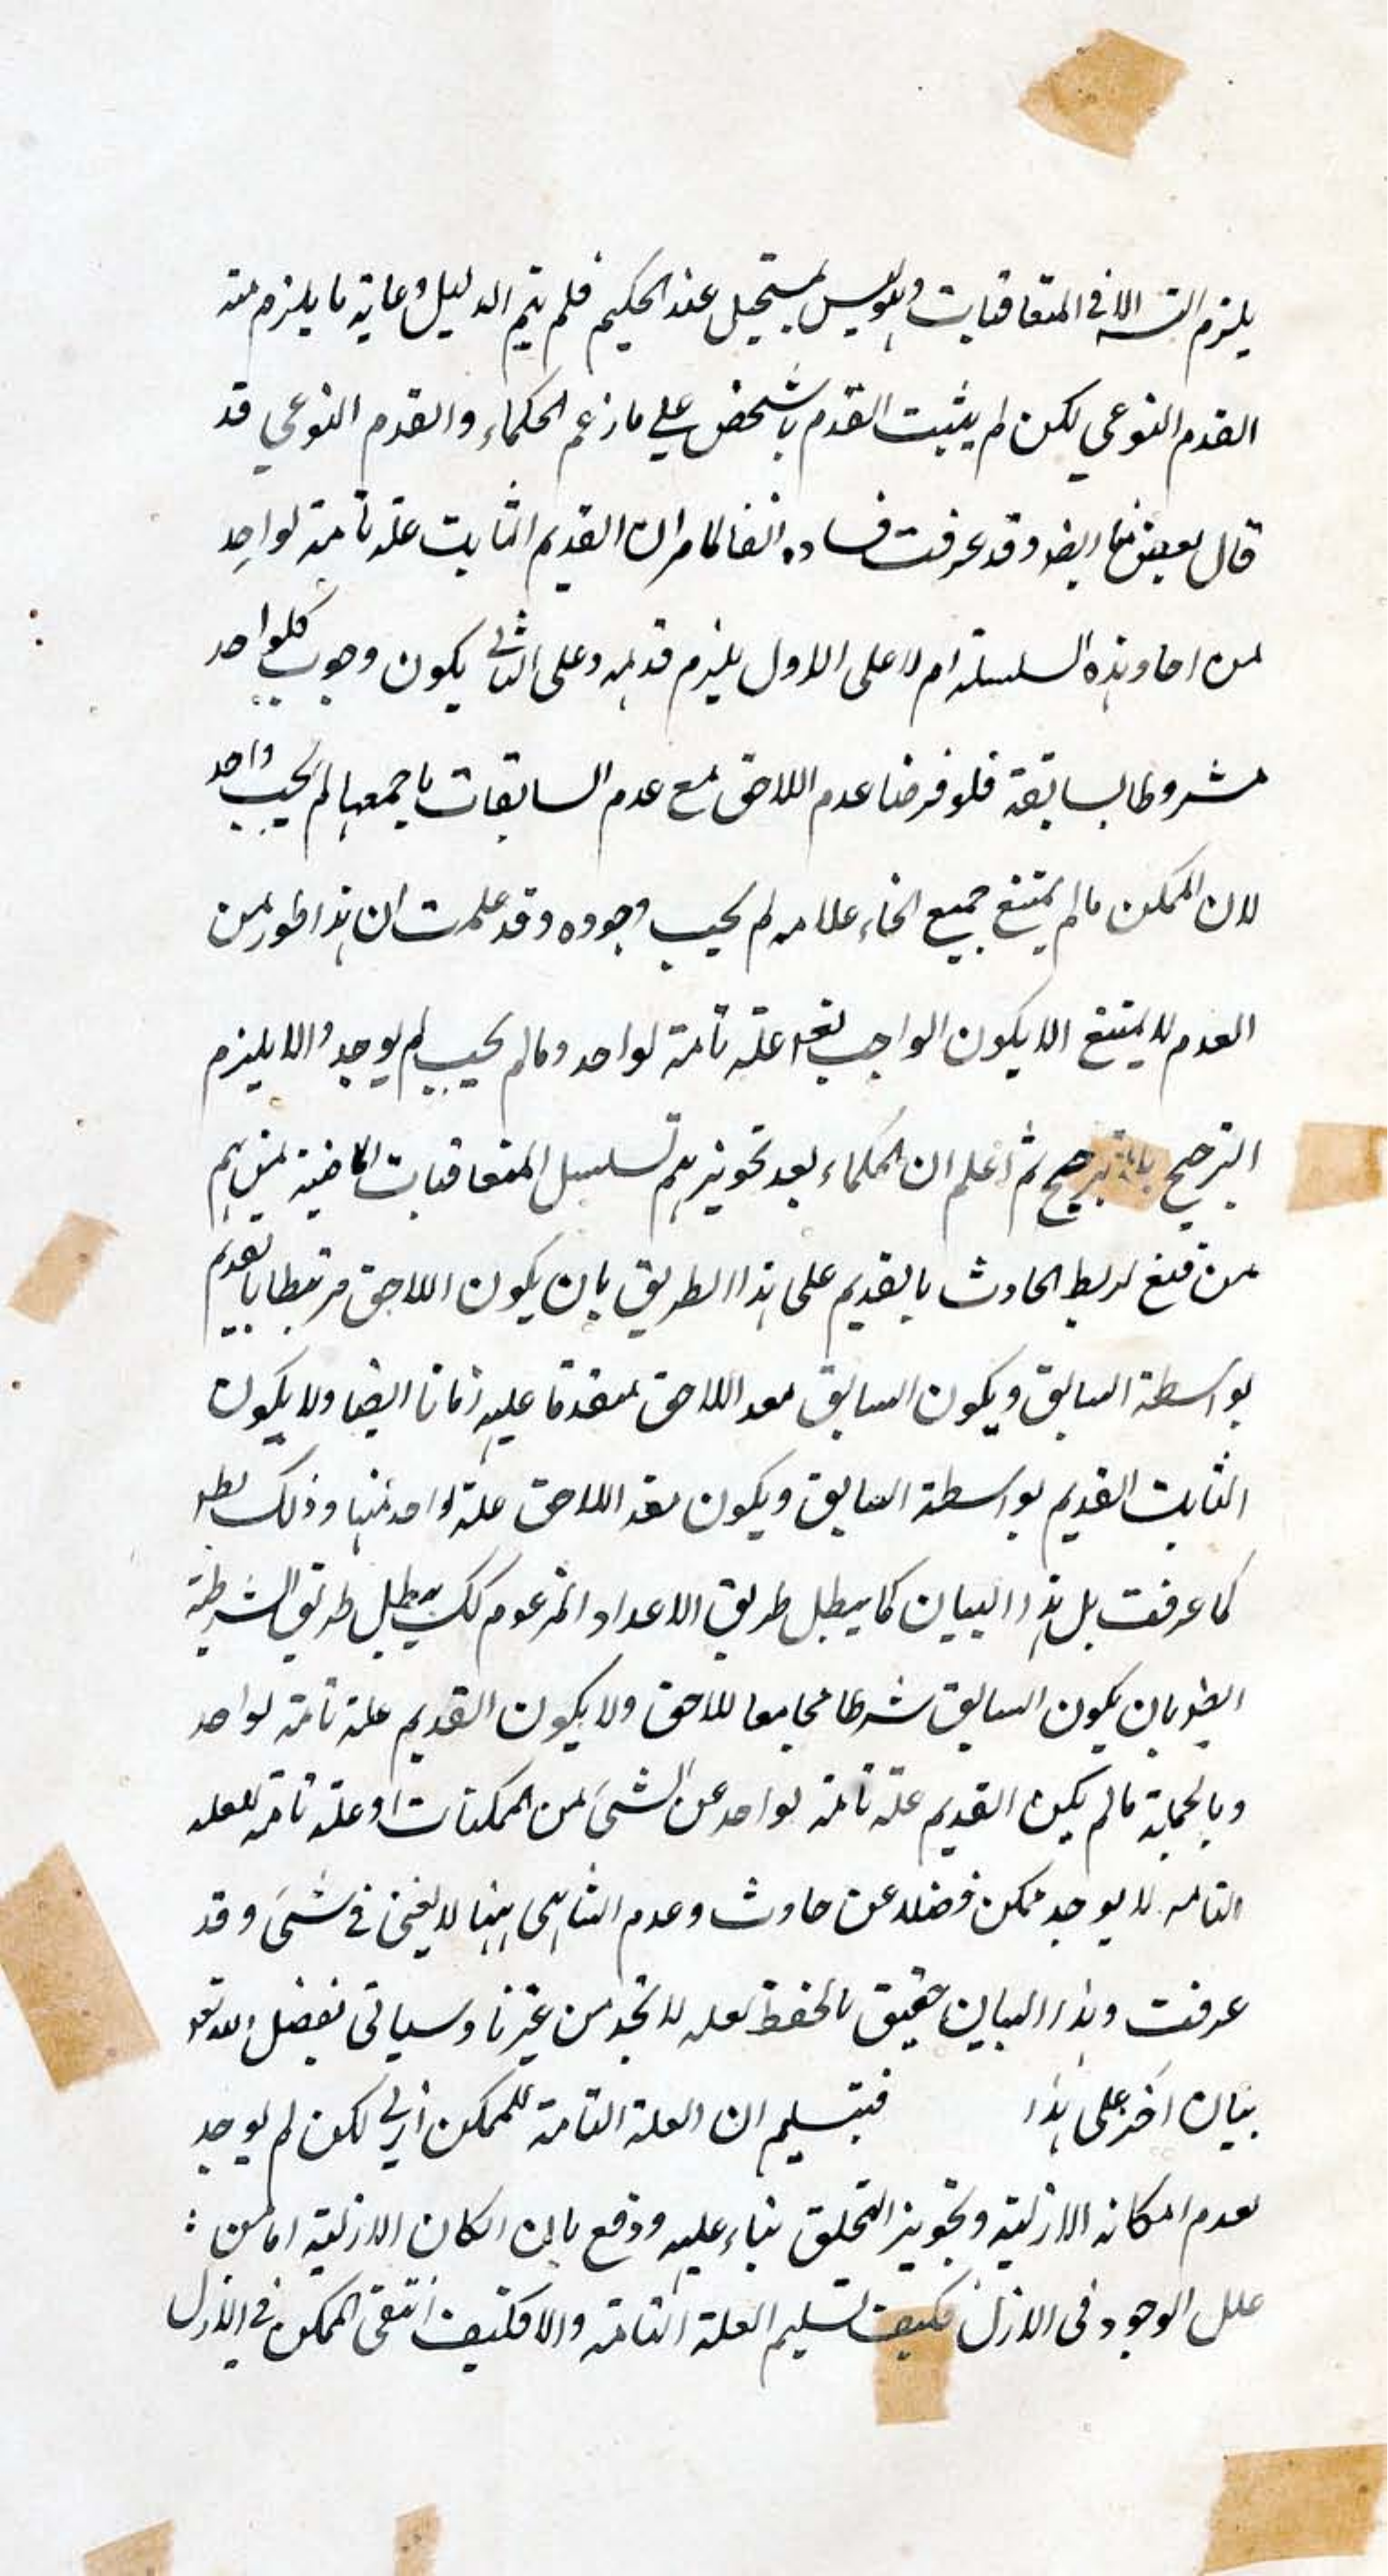 يلزم التسـ الا في المتعاقبات وهو ليس بمستحيل عند الحكيم فلم يتم الدليل وغاية ما يلزم منه
القدم النوعي لكن لم يثبت القدم بالشخص على ما زعم الحكماء والقدم النوعي قد
قال بعض منا ايضـ وقد عرفت فساده انفا لما مر ان القديم الثابت علة تامة لواحد
من احاد هذه السلسلة ام لا على الاول يلزم قدمه وعلى الثاني يكون وجوب كلواحد
مشروطا بسابقة فلو فرضنا عدم اللاحق مع عدم السابقات باجمعها لم يجب واحد
لان الممكن ما لم يمتنع جميع انحاء عدمه لم يجب وجوده وقد علمت ان هذا طور من
العدم لا يمتنع الا بكون الواجب تعـ علة تامة لواحد وما لم يجب لم يوجد والا يلزم
الترجيح بلا ترجيح ثم اعلم ان الحكماء بعد تجويزهم تسلسل المتعاقبات الماضية منهم
من قنع لربط الحادث بالقديم على هذا الطريق بان يكون اللاحق مرتبطا بالقديم
بواسطة السابق ويكون السابق معد اللاحق متقدما عليه زمانا ايضا ولا يكون
الثابت القديم بواسطة السابق ويكون معد اللاحق علة لواحد منها وذلك بطـ
كما عرفت بل هذا البيان كما يبطل طريق الاعداد المزعوم كك يبطل طريق الشرطية
ايضـ بان يكون السابق شرطا مجامعا للاحق ولا يكون القديم علة تامة لواحد
وبالجملة ما لم يكن القديم علة تامة لواحد عن الشيء من الممكنات او علة تامة للعلة
التامة لا يوجد ممكن فضلا عن حادث وعدم التناهي ههنا لا يغني في شيء وقد
عرفت وهذا البيان حقيق بالحفظ لعله لا تجد من غيرنا وسياتي بفضل الله تعـ
بيان اخر على هذا فبتسليم ان العلة التامة للممكن ازلي لكن لم يوجد
لعدم امكانه الازلية وتجويز التخلق بناء عليه ودفع بان امكان الازلية اما من
علل الوجود في الازل فكيف تسليم العلة التامة والا فكيف انتفى الممكن في الازل